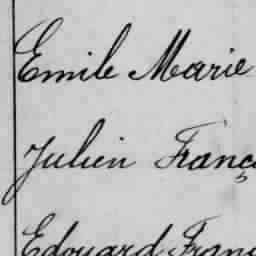 Emile Marie
Julien Franç
Edouard Franç